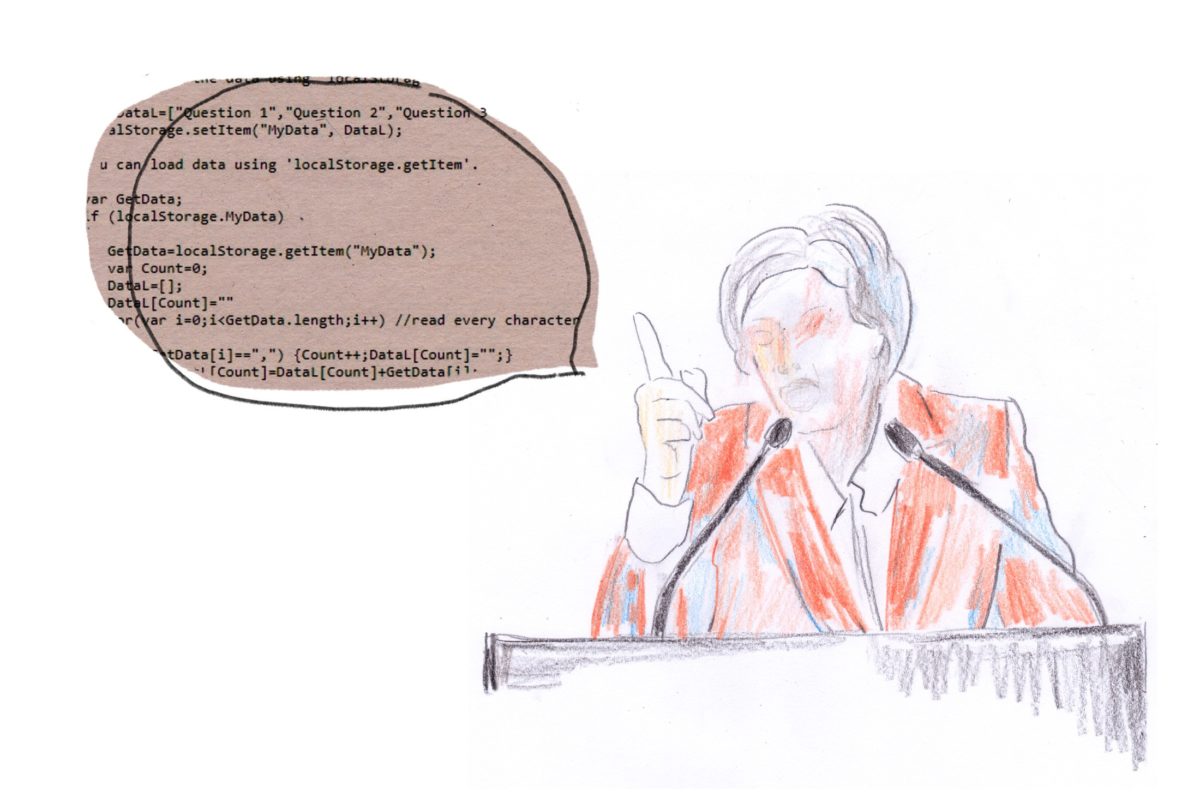 the data using 'localStorag
DataL=["Question 1","Question 2","Question 3
alStorage.setItem("MyData", DataL);
u can load data using 'localStorage.getItem'.
var GetData;
if (localStorage.MyData)
GetData=localStorage.getItem("MyData");
var Count=0;
DataL=[];
DataL[Count]=""
or(var i=0;i<GetData.length;i++) //read every character
tData[i]==",") {Count++;DataL[Count]="";}
L[Count]=DataL[Count]+GetData[i];